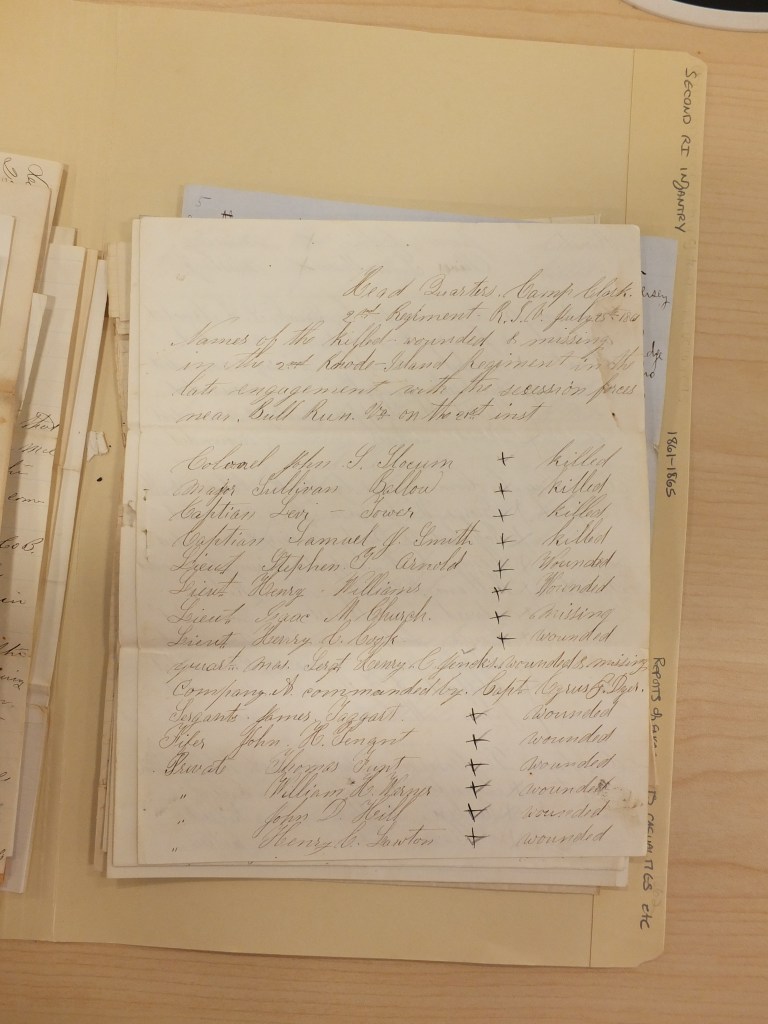 SECOND RI INFANTRY
1861-1865
REPORTS CASUALTIES etc
5
Head Quarters. Camp Clark.
2nd Regiment R.I.V. July
Names of the killed wounded & missing
in the 2nd Rhode-Island Regiment in the
late engagement with the secession forces
near. Bull Run. Va on the 21st inst
Colonel John S. Slocum + killed
Major Sullivan Ballou + killed
Captian Levi - Tower + killed
Captian Samuel J. Smith + killed
Lieut Stephen T. Arnold + Wounded
Lieut Henry Williams + Wounded
Lieut Isaac M. Church. + missing
Lieut Henry C. Cook + wounded
quart. mas. Sergt Henry C. Jincks. wounded & missing
Company A commanded by. Capt Cyrus G. Dyer.
Sergants James Taggart. + wounded
Fifer John H. + wounded
Private Thomas + wounded
" William H. + wounded
" John D. Hill + wounded
" Henry C. Lawton + wounded